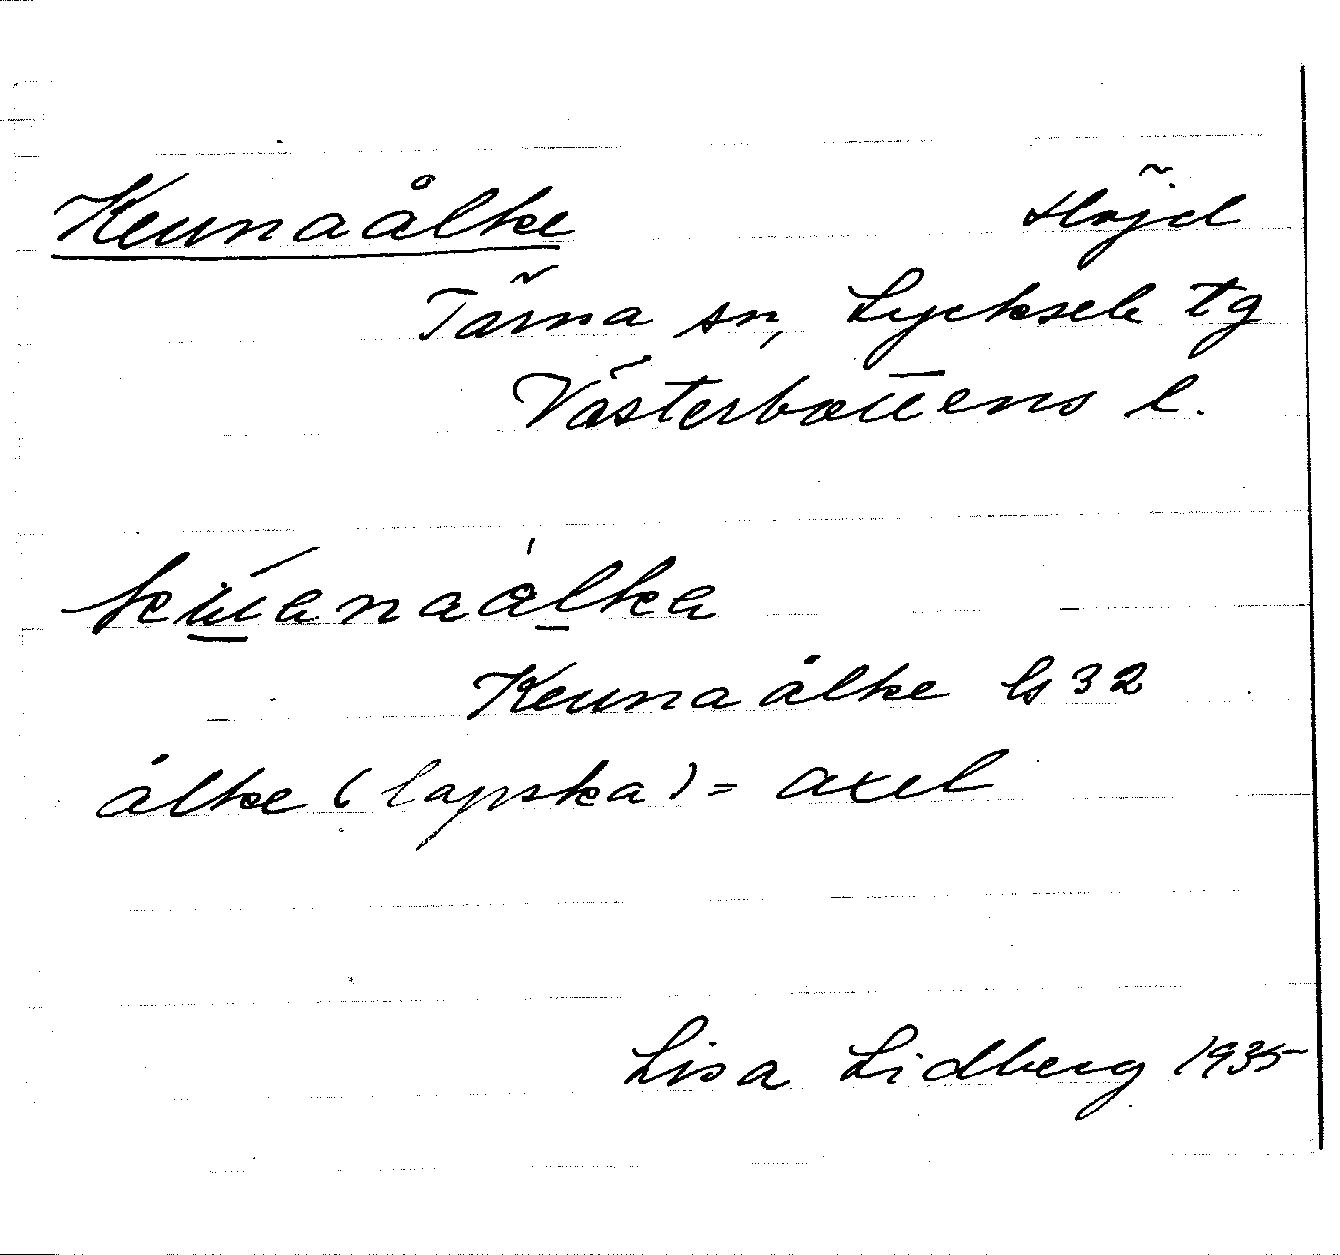 Keunaålke Höjd
Tärna sn, Lycksele tg
Västerbottens l.
kiuanaålka
Keunaålke Gs 32
ålke (lapska) = axel
Lisa Lidberg 1935